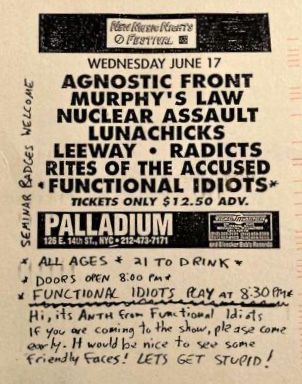 New Music Nights
Festival
WEDNESDAY JUNE 17
AGNOSTIC FRONT
MURPHY'S LAW
NUCLEAR ASSAULT
LUNACHICKS
LEEWAY • RADICTS
RITES OF THE ACCUSED
*FUNCTIONAL IDIOTS*
TICKETS ONLY $12.50 ADV.
PALLADIUM
126 E. 14th ST., NYC • 212-473-7171
and Bleecker Bob's Records
* SEMINAR BADGES WELCOME
* ALL AGES * 21 TO DRINK *
* DOORS OPEN 8:00 PM *
* FUNCTIONAL IDIOTS PLAY AT 8:30 PM *
Hi, its ANTH from Functional Idiots
If you are coming to the show, please come
early. It would be nice to see some
friendly faces! LETS GET STUPID!